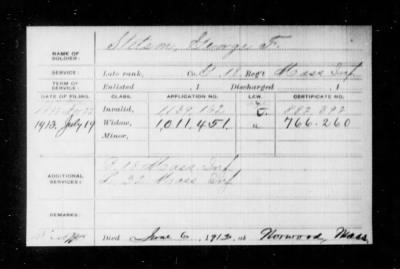 NAME OF SOLDIER: Stetson, George F.
SERVICE: Late rank, Co. 18 Reg't Mass Inf
Enlisted , 1 Discharged , 1
DATE OF FILING. CLASS. APPLICATION NO. LAW. CERTIFICATE NO.
Invalid, 1139,152 882,892
1913. July 19 Widow, 1,011,451. 766.260
Minor,
ADDITIONAL SERVICES: Mass Inf
32 Mass Inf
REMARKS:
Died June 6, 1913, at Norwood, Mass